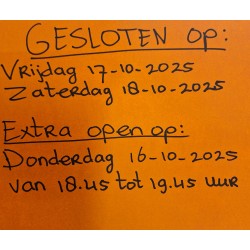 GESLOTEN op:
Vrijdag 17-10-2025
Zaterdag 18-10-2025
Extra open op:
Donderdag 16-10-2025
van 18.45 tot 19.45 uur